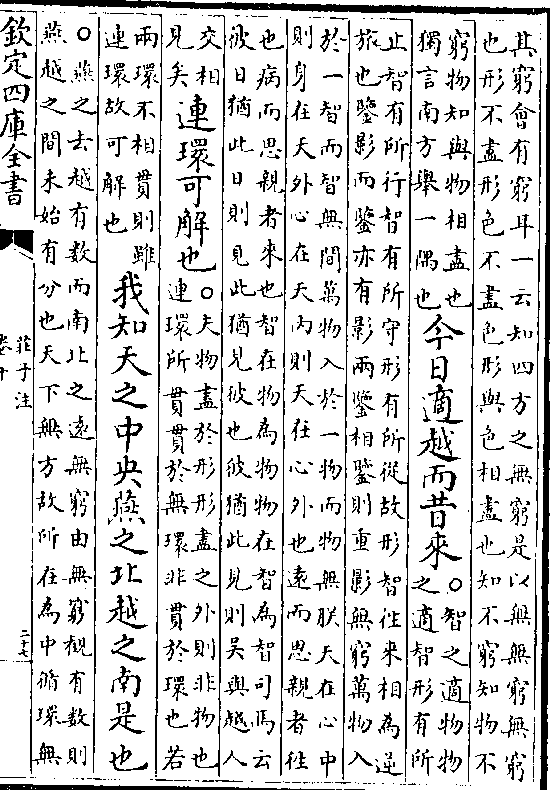 其窮會有窮耳一云知四方之無窮是以無無窮無窮
也形不盡形色不盡色形與色相盡也知不窮知物不
窮物知與物相盡也
獨言南方舉一隅也
今日適越而昔來
○智之適物物
之適智形有所
止智有所行智有所守形有所從故形智往來相為逆
旅也鑒影而鑒亦有影兩鑒相鑒則重影無窮萬物入
於一智而智無間萬物入於一物而物無朕天在心中
則身在天外心在天内則天在心外也遠而思親者往
也病而思親者來也智在物為物物在智為智司馬云
彼日猶此日則見此猶見彼也彼猶此見則吳與越人
交相
見矣
連環可解也
○夫物盡於形形盡之外則非物也
連環所貫貫於無環非貫於環也若
兩環不相貫則雖
連環故可解也
我知天之中央燕之北越之南是也
○燕之去越有數而南北之遠無窮由無窮觀有數則
燕越之間未始有分也天下無方故所在為中循環無
欽定四庫全書
莊子注
卷十
二十七